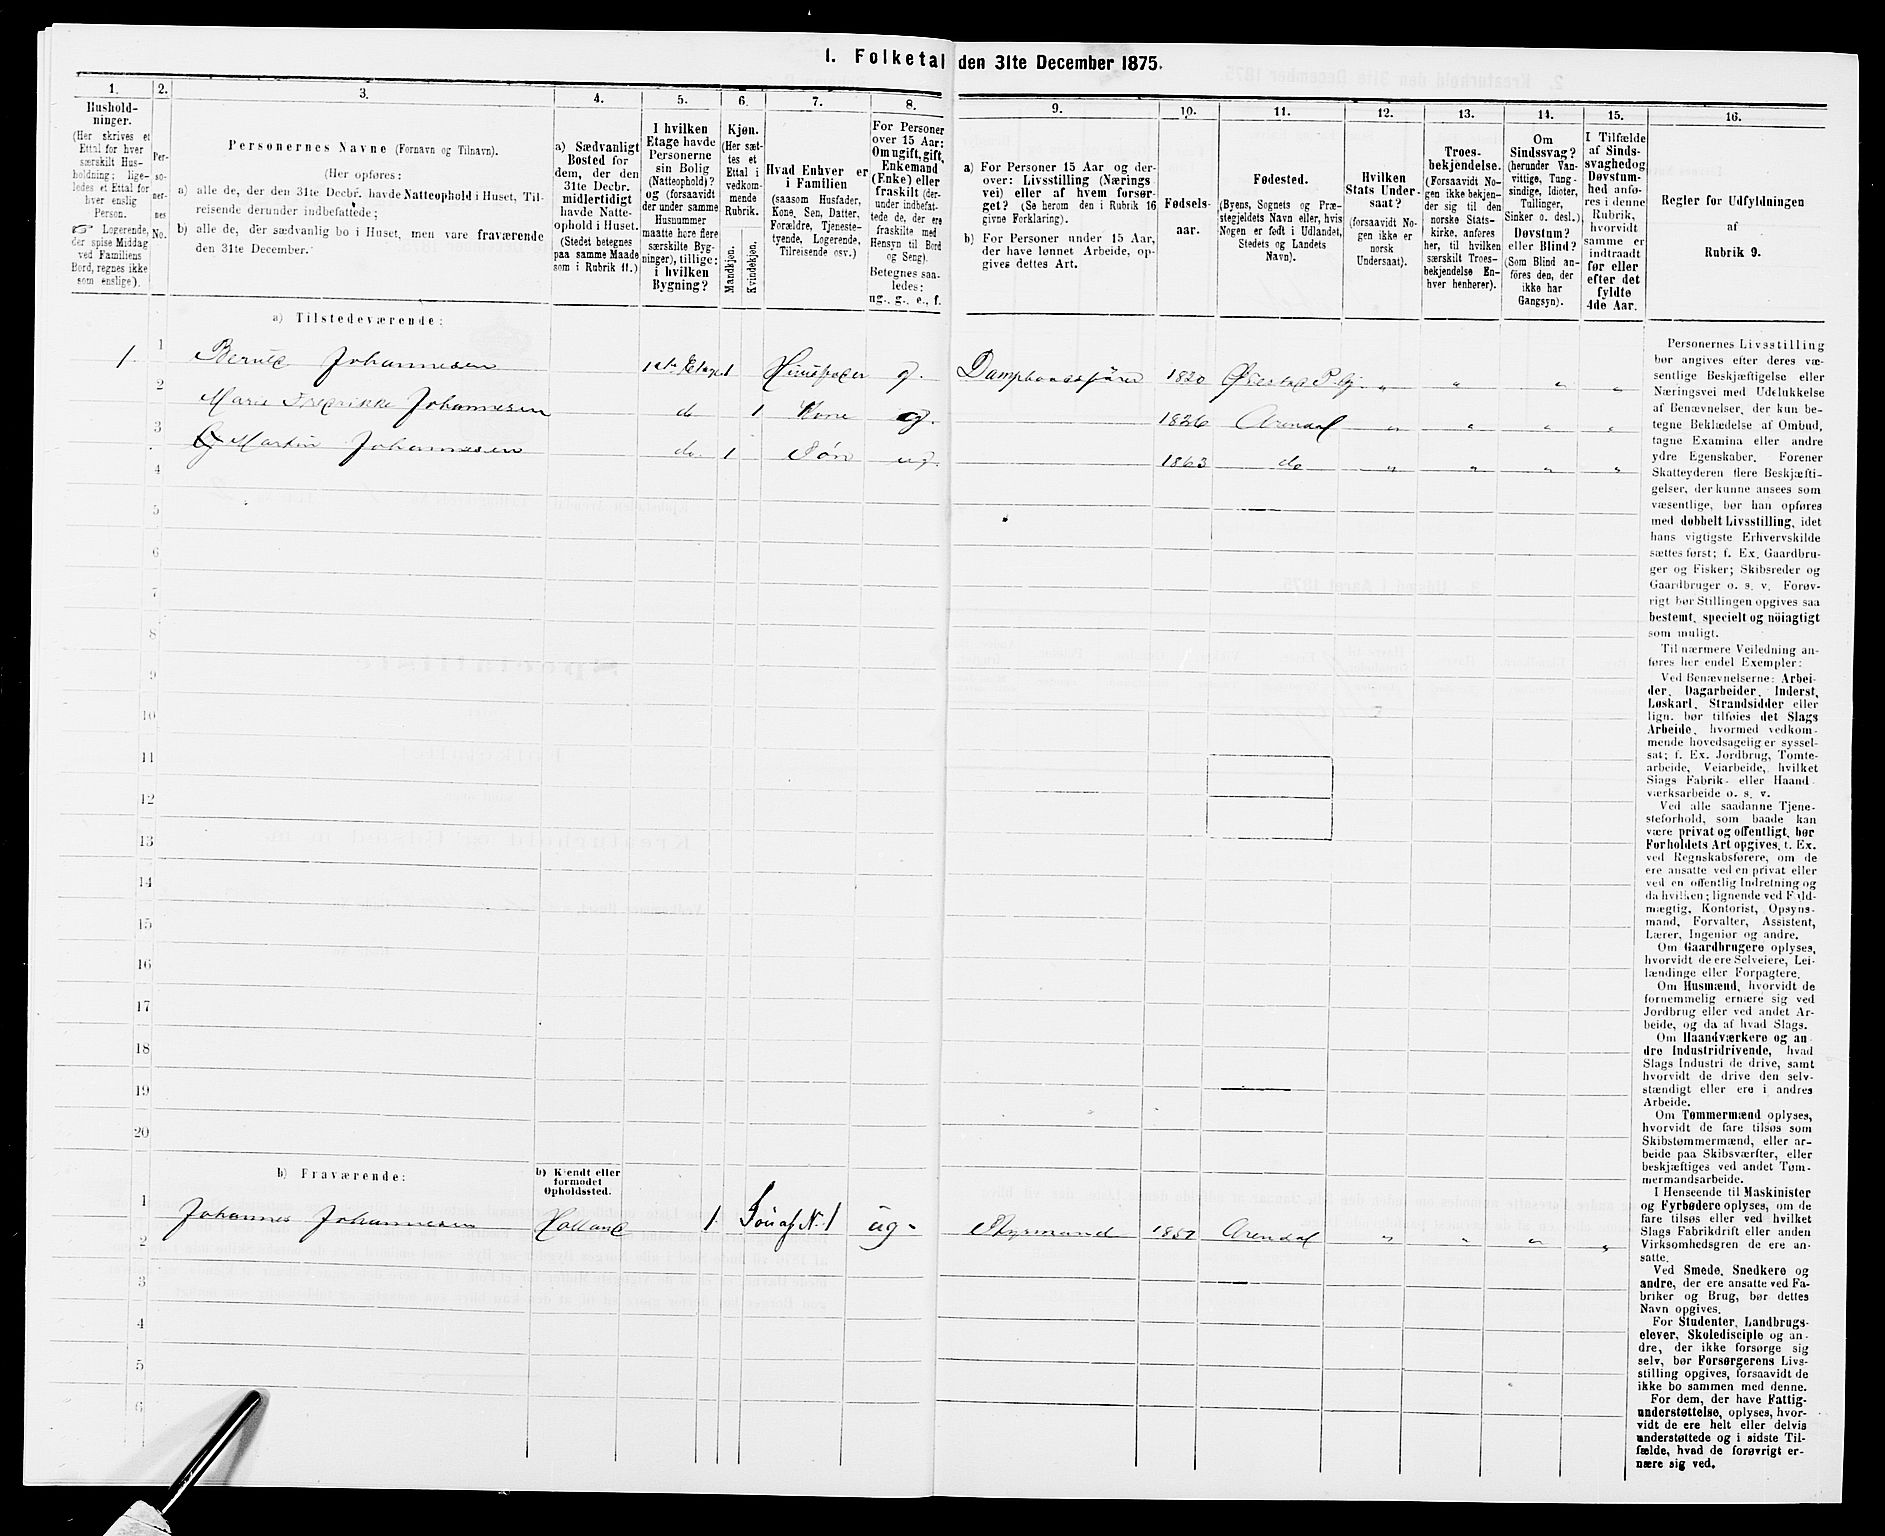 1. Folketal den 31te December 1875.
1. 2. 3. 4. 5. 6. 7. 8. 9. 10. 11. 12. 13. 14. 15. 16.
Hushold-
ninger.
(Her skrives et
Ettal for hver
særskilt Hus-
holdning; lige-
ledes et Ettal for
hver enslig
Person.
☞ Logerende,
der spise Middag
ved Familiens
Bord, regnes ikke
som enslige).
Per-
so-
ner-
nes
No.
Personernes Navne (Fornavn og Tilnavn).
(Her opføres:
a) alle de, der den 31te Decbr. havde Natteophold i Huset, Til-
reisende derunder indbefattede;
b) alle de, der sædvanlig bo i Huset, men vare fraværende
den 31te December.
a) Sædvanligt
Bosted for
dem, der den
31te Decbr.
midlertidigt
havde Natte-
ophold i Huset.
(Stedet betegnes
paa samme Maade
som i Rubrik 11.)
I hvilken
Etage havde
Personerne
sin Bolig
(Natteophold)?
og (forsaavidt
der under samme
Husnummer
maatte høre flere
særskilte Byg-
ninger), tillige:
i hvilken
Bygning?
Kjøn.
(Her sæt-
tes et
Ettal i
vedkom-
mende
Rubrik.
Mandkjøn.
Kvindekjøn.
Hvad Enhver er
i Familien
(saasom Husfader,
Kone, Søn, Datter,
Forældre, Tjeneste-
tyende, Logerende,
Tilreisende osv.)
For Personer
over 15 Aar:
Om ugift, gift,
Enkemand
(Enke) eller
fraskilt (der-
under indbefat-
tede de, der ere
fraskilte med
Hensyn til Bord
og Seng).
Betegnes saa-
ledes:
ug., g., e., f.
a) For Personer 15 Aar og der-
over: Livsstilling (Nærings-
vei) eller af hvem forsør-
get? (Se herom den i Rubrik 16
givne Forklaring).
b) For Personer under 15 Aar,
der have lønnet Arbeide, op-
gives dettes Art.
Fødsels-
aar.
Fødested.
(Byens, Sognets og Præ-
stegjeldets Navn eller, hvis
Nogen er født i Udlandet,
Stedets og Landets
Navn).
Hvilken
Stats Under-
saat?
(forsaavidt No-
gen ikke er
norsk
Undersaat).
Troes-
bekjendelse.
(Forsaavidt No-
gen ikke bekjen-
der sig til den
norske Stats-
kirke, anføres
her, til hvilken
særskilt Troes-
bekjendelse En-
hver henhører).
Om
Sindssvag?
(herunder Van-
vittige, Tung-
sindige, Idioter,
Tullinger,
Sinker o. desl.)
Døvstum?
eller Blind?
(Som Blind an-
føres den, der
ikke har
Gangsyn).
I Tilfælde
af Sinds-
svaghedog
Døvstum-
hed anfø-
res i denne
Rubrik,
hvorvidt
samme er
indtraadt
før eller
efter det
fyldte
4de Aar.
Regler for Udfyldningen
af
Rubrik 9.
a) Tilstedeværende:
1. 1 Johannesen 1ste Etage 1 g. 1820 " " " "
2 Marie Fredrikke Johannesen do 1 Kone g. 1826 Arendal " " " "
3 Martin Johannesen do. 1 Søn ug. 1863 do " " " "
4
5
6
7
8
9
10
11
12
13
14
15
16
17
18
19
20
b) Fraværende:
b) Kjendt eller
formodet
Opholdssted.
1 Johannes Johannesen Holland 1 Søn af N. 1 ug. Styrmand 1857 Arendal " " " "
2
3
4
5
6
Personernes Livsstilling
bør angives efter deres væ-
sentlige Beskjæftigelse eller
Næringsvei med Udelukkelse
af Benævnelser, der kun be-
tegne Beklædelse af Ombud,
tagne Examina eller andre
ydre Egenskaber. Forener
Skatteyderen flere Beskjæfti-
gelser, der kunne ansees som
væsentlige, bør han opføres
med dobbelt Livsstilling, idet
hans vigtigste Erhvervskilde
sættes først; f. Ex. Gaardbru-
ger og Fisker; Skibsreder og
Gaardbruger o. s. v. Forøv-
rigt bør Stillingen opgives saa
bestemt, specielt og nöiagtigt
som muligt.
Til nærmere Veiledning an-
føres her endel Exempler:
Ved Benævnelserne: Arbei-
der, Dagarbeider, Inderst,
Løskarl, Strandsidder eller
lign. bør tilføies det Slags
Arbeide, hvormed vedkom-
mende hovedsagelig er syssel-
sat; f. Ex. Jordbrug, Tomte-
arbeide, Veiarbeide, hvilket
Slags Fabrik- eller Haand-
værksarbeide o. s. v.
Ved alle saadanne Tjene-
steforhold, som baade kan
være privat og offentligt, bør
Forholdets Art opgives, f. Ex.
ved Regnskabsførere, om de
ere ansatte ved en privat eller
ved en offentlig Indretning og
da hvilken; lignende ved Fuld-
mægtig, Kontorist, Opsyns-
mand, Forvalter, Assistent,
Lærer, Ingeniør og andre.
Om Gaardbrugere oplyses,
hvorvidt de ere Selveiere, Lei-
lændinge eller Forpagtere.
Om Husmænd, hvorvidt de
fornemmelig ernære sig ved
Jordbrug eller ved andet Ar-
beide, og da af hvad Slags.
Om Haandværkere og an-
dre Industridrivende, hvad
Slags Industri de drive, samt
hvorvidt de drive den selv-
stændigt eller ere i andres
Arbeide.
Om Tømmermænd oplyses,
hvorvidt de fare tilsøs som
Skibstømmermænd, eller ar-
beide paa Skibsværfter, eller
beskjæftiges ved andet Tøm-
mermandsarbeide.
I Henseende til Maskinister
og Fyrbødere oplyses, om de
fare tilsøs eller ved hvilket
Slags Fabrikdrift eller anden
Virksomhedsgren de ere an-
satte.
Ved Smede, Snedkere og
andre, der ere ansatte ved Fa-
briker og Brug, bør dettes
Navn opgives.
For Studenter, Landbrugs-
elever, Skoledisciple og an-
dre, der ikke forsørge sig
selv, bør Forsørgerens Livs-
stilling opgives, forsaavidt de
ikke bo sammen med denne.
For dem, der have Fattig-
understøttelse, oplyses, hvor-
vidt de ere helt eller delvis
understøttede og i sidste Til-
fælde, hvad de forøvrigt er-
nære sig ved.